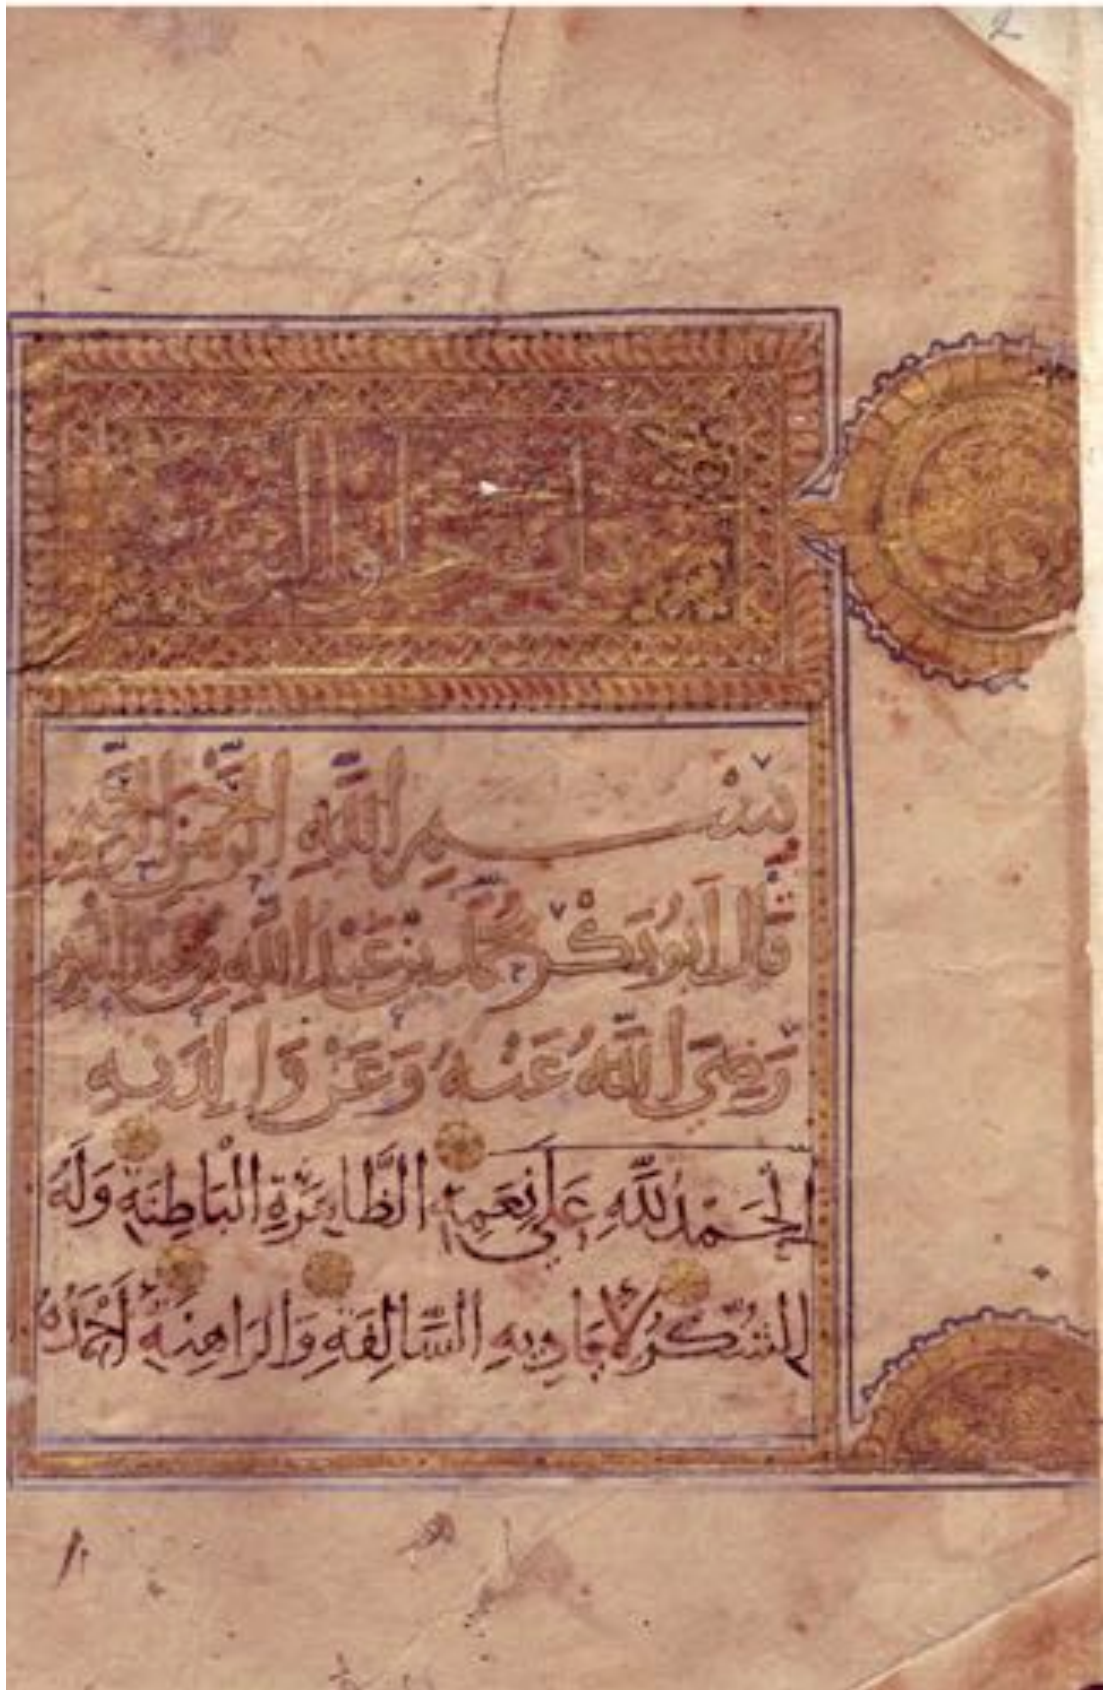 2
بِسْمِ اللَّهِ الرَّحْمَنِ الرَّحِيمِ
قَالَ أَبُو بَكْرٍ مُحَمَّدُ بْنُ عَبْدِ اللَّهِ بْنِ
رَضِيَ اللَّهُ عَنْهُ وَعَنْ وَالِدَيْهِ
الْحَمْدُ لِلَّهِ عَلَى نِعَمِهِ الظَّاهِرَةِ الْبَاطِنَةِ وَلَهُ
الشُّكْرُ السَّالِفَةِ وَالرَاهِنَةِ أَحْمَدُهُ